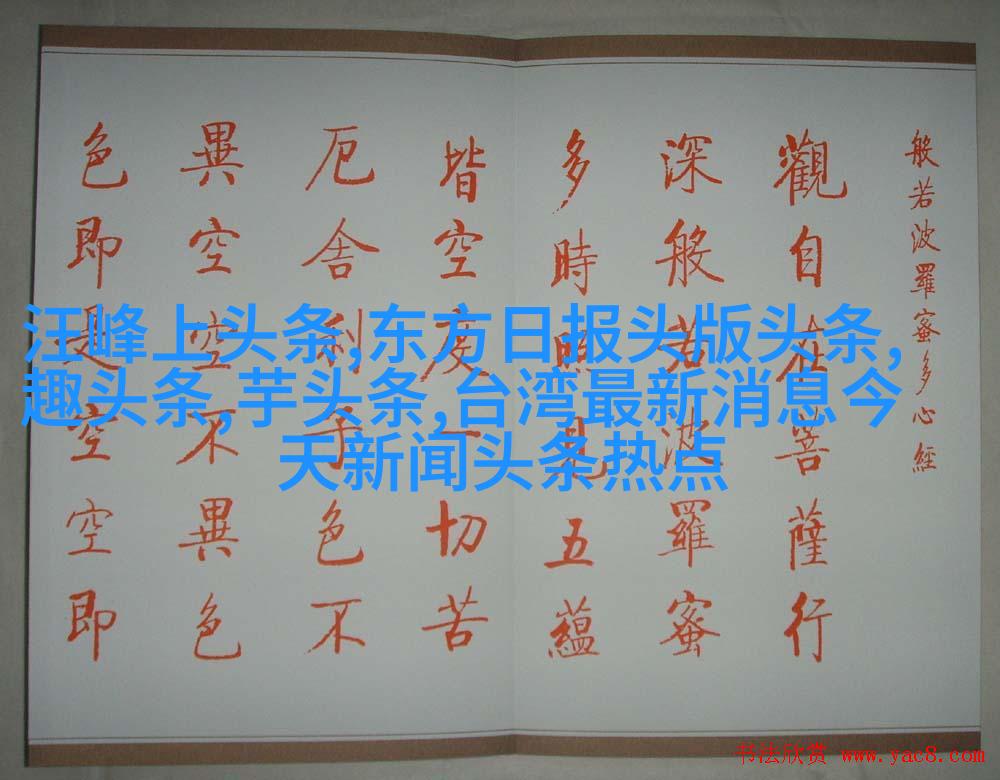 般若波羅蜜多心經
觀自在菩薩行
深般若波羅蜜
多時照見五蘊
皆空度一切苦
厄舍利子色不
異空空不異色
色即是空空即
汪峰上头条,东方日报头版头条,
趣头条,芋头条,台湾最新消息今
天新闻头条热点
书法欣赏 www.yac8.com